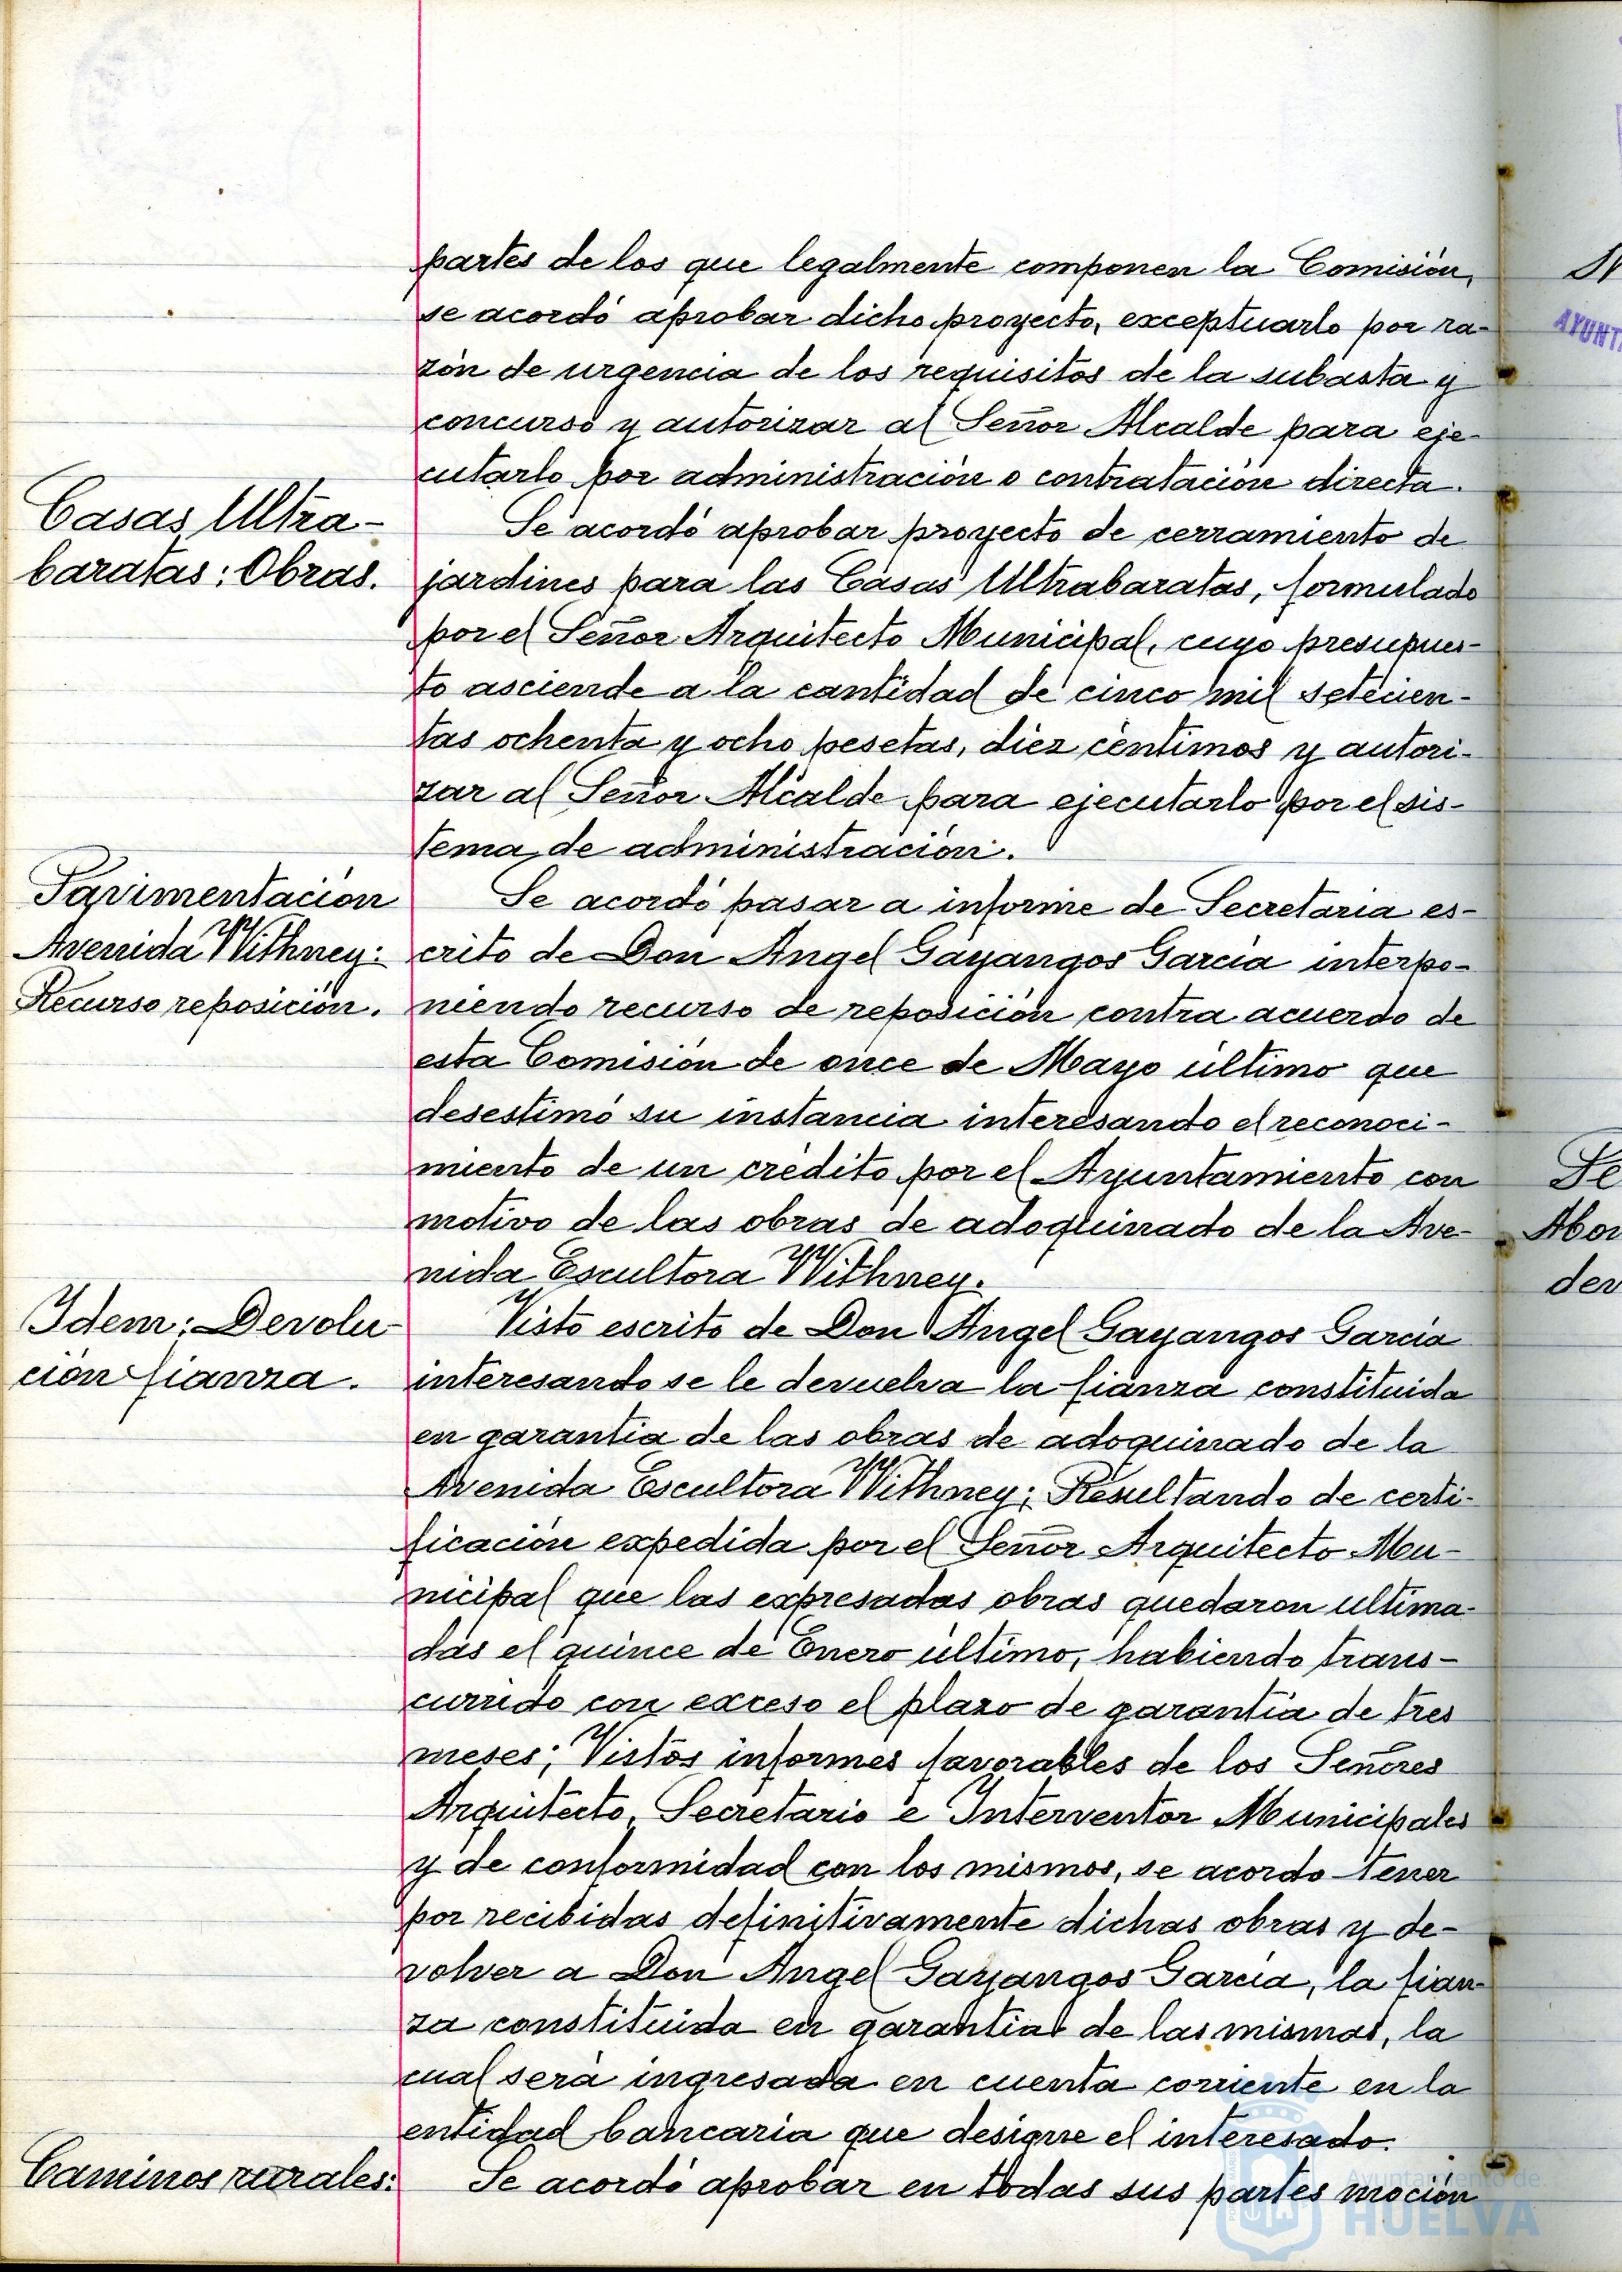 partes de los que legalmente componen la Comisión,
se acordó aprobar dicho proyecto, exceptuarlo por ra-
zón de urgencia de los requisitos de la subasta y
concurso y autorizar al Señor Alcalde para eje-
cutarlo por administración o contratación directa.
Casas Ultra-
baratas: Obras.
Se acordó aprobar proyecto de cerramiento de
jardines para las Casas Ultrabaratas, formulado
por el Señor Arquitecto Municipal, cuyo presupues-
to asciende a la cantidad de cinco mil setecien-
tas ochenta y ocho pesetas, diez céntimos y autori-
zar al Señor Alcalde para ejecutarlo por el sis-
tema de administración.
Pavimentación
Avenida Withney:
Recurso reposición.
Se acordó pasar a informe de Secretaria es-
crito de Don Angel Gayangos García interpo-
niendo recurso de reposición contra acuerdo de
esta Comisión de once de Mayo último que
desestimó su instancia interesando el reconoci-
miento de un crédito por el Ayuntamiento con
motivo de las obras de adoquinado de la Ave-
nida Escultora Withney.
Idem: Devolu-
ción fianza.
Visto escrito de Don Angel Gayangos García
interesando se le devuelva la fianza constituida
en garantía de las obras de adoquinado de la
Avenida Escultora Withney; Resultando de certi-
ficación expedida por el Señor Arquitecto Mu-
nicipal que las expresadas obras quedaron ultima-
das el quince de Enero último, habiendo trans-
currido con exceso el plazo de garantía de tres
meses; Vistos informes favorables de los Señores
Arquitecto, Secretario e Interventor Municipales
y de conformidad con los mismos, se acordo tener
por recibidas definitivamente dichas obras y de-
volver a Don Angel Gayangos García, la fian-
za constituida en garantias de las mismas, la
cual será ingresada en cuenta corriente en la
entidad bancaria que designe el interesado.
Caminos rurales:
Se acordó aprobar en todas sus partes moción
Ayuntamiento de
HUELVA
AYUNT